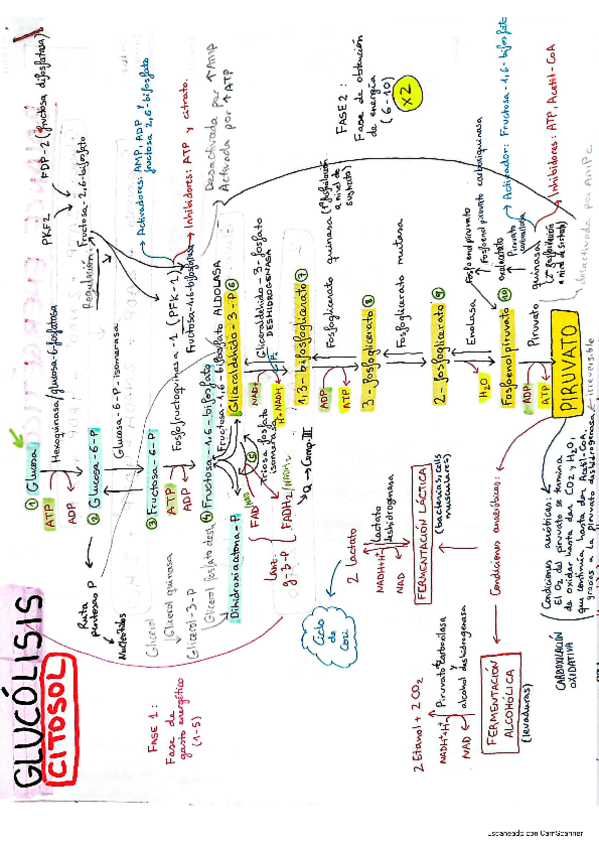 GLUCÓLISIS
CITOSOL
FASE 1:
Fase de
gasto energético
(1-5)
① Glucosa
ATP
ADP
Hexoquinasa/glucosa-6-fosfatasa
② Glucosa-6-P
Ruta
pentosas P
Nucleótidos
Glucosa-6-P-isomerasa
③ Fructosa-6-P
ATP
ADP
Fosfofructoquinasa-1 (PFK-1)
Fructosa-1,6-bifosfatasa
Regulación:
Fructosa-2,6-bifosfato
PKF2
FDP-2 (fructosa difosfatasa)
Activadores: AMP, ADP y
fructosa 2,6-bifosfato
Inhibidores: ATP y citrato.
Desactivada por ↑AMP
Activada por ↑ATP
④ Fructosa-1,6-bifosfato
Fructosa-1,6-bifosfato ALDOLASA
Glicerol
Glicerol quinasa
Glicerol-3-P
Glicerol fosfato desh
Dihidroxiacetona-P
Triosa fosfato
isomerasa
⑤
FAD
FADH2
g-3-P
Q → Comp.III
Gliceraldehido-3-P ⑥
NAD+
H+NADH
Pi
Gliceraldehido-3-fosfato
DESHIDROGENASA
1,3-bifosfoglicerato ⑦
ADP
ATP
Fosfoglicerato quinasa (1ª fosforilación
a nivel de
sustrato)
3-fosfoglicerato ⑧
Fosfoglicerato mutasa
2-fosfoglicerato ⑨
H2O
Enolasa
Fosfoenolpiruvato ⑩
Fosfoenolpiruvato
Fosfoenol piruvato carboxiquinasa
oxalacetato
Piruvato
carboxilasa
ADP
ATP
Piruvato quinasa
(2ª fosforilación
a nivel de sustrato)
Activador: Fructosa-1,6-bifosfato
Inhibidores: ATP, Acetil-CoA
desactivada por AMPc
irreversible
PIRUVATO
FASE 2:
Fase de obtención
de energía
(6-10)
X2
Condiciones anaeróbicas:
FERMENTACIÓN LÁCTICA
(bacterias, cels
musculares)
2 Lactato
NADH+H+
NAD
Lactato
deshidrogenasa
Ciclo
de
Cori
FERMENTACIÓN
ALCOHÓLICA
(levaduras)
2 Etanol + 2 CO2
NADH+H+
NAD
Piruvato carboxilasa
y
alcohol deshidrogenasa
Condiciones aeróbicas:
El O2 del piruvato termina
de oxidar hasta dar CO2 y H2O,
que continúa hasta dar Acetil-CoA,
gracias a la piruvato deshidrogenasa
CARBOXILACIÓN
OXIDATIVA
Escaneado con CamScanner